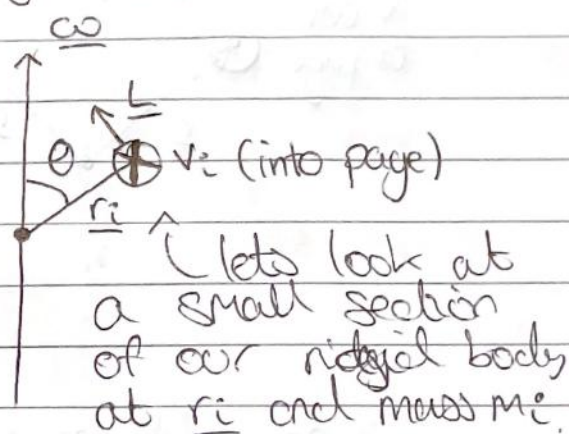 ω
L
θ vᵢ (into page)
rᵢ
lets look at
a small section
of our ridgid body
at rᵢ and mass mᵢ